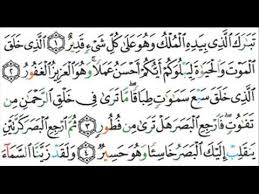 تَبَٰرَكَ ٱلَّذِى بِيَدِهِ ٱلْمُلْكُ وَهُوَ عَلَىٰ كُلِّ شَىْءٍ قَدِيرٌ ١ ٱلَّذِى خَلَقَ
ٱلْمَوْتَ وَٱلْحَيَوٰةَ لِيَبْلُوَكُمْ أَيُّكُمْ أَحْسَنُ عَمَلًا وَهُوَ ٱلْعَزِيزُ ٱلْغَفُورُ ٢
ٱلَّذِى خَلَقَ سَبْعَ سَمَٰوَٰتٍ طِبَاقًا مَّا تَرَىٰ فِى خَلْقِ ٱلرَّحْمَٰنِ مِن
تَفَٰوُتٍ فَٱرْجِعِ ٱلْبَصَرَ هَلْ تَرَىٰ مِن فُطُورٍ ٣ ثُمَّ ٱرْجِعِ ٱلْبَصَرَ كَرَّتَيْنِ
يَنقَلِبْ إِلَيْكَ ٱلْبَصَرُ خَاسِئًا وَهُوَ حَسِيرٌ ٤ وَلَقَدْ زَيَّنَّا ٱلسَّمَآءَ